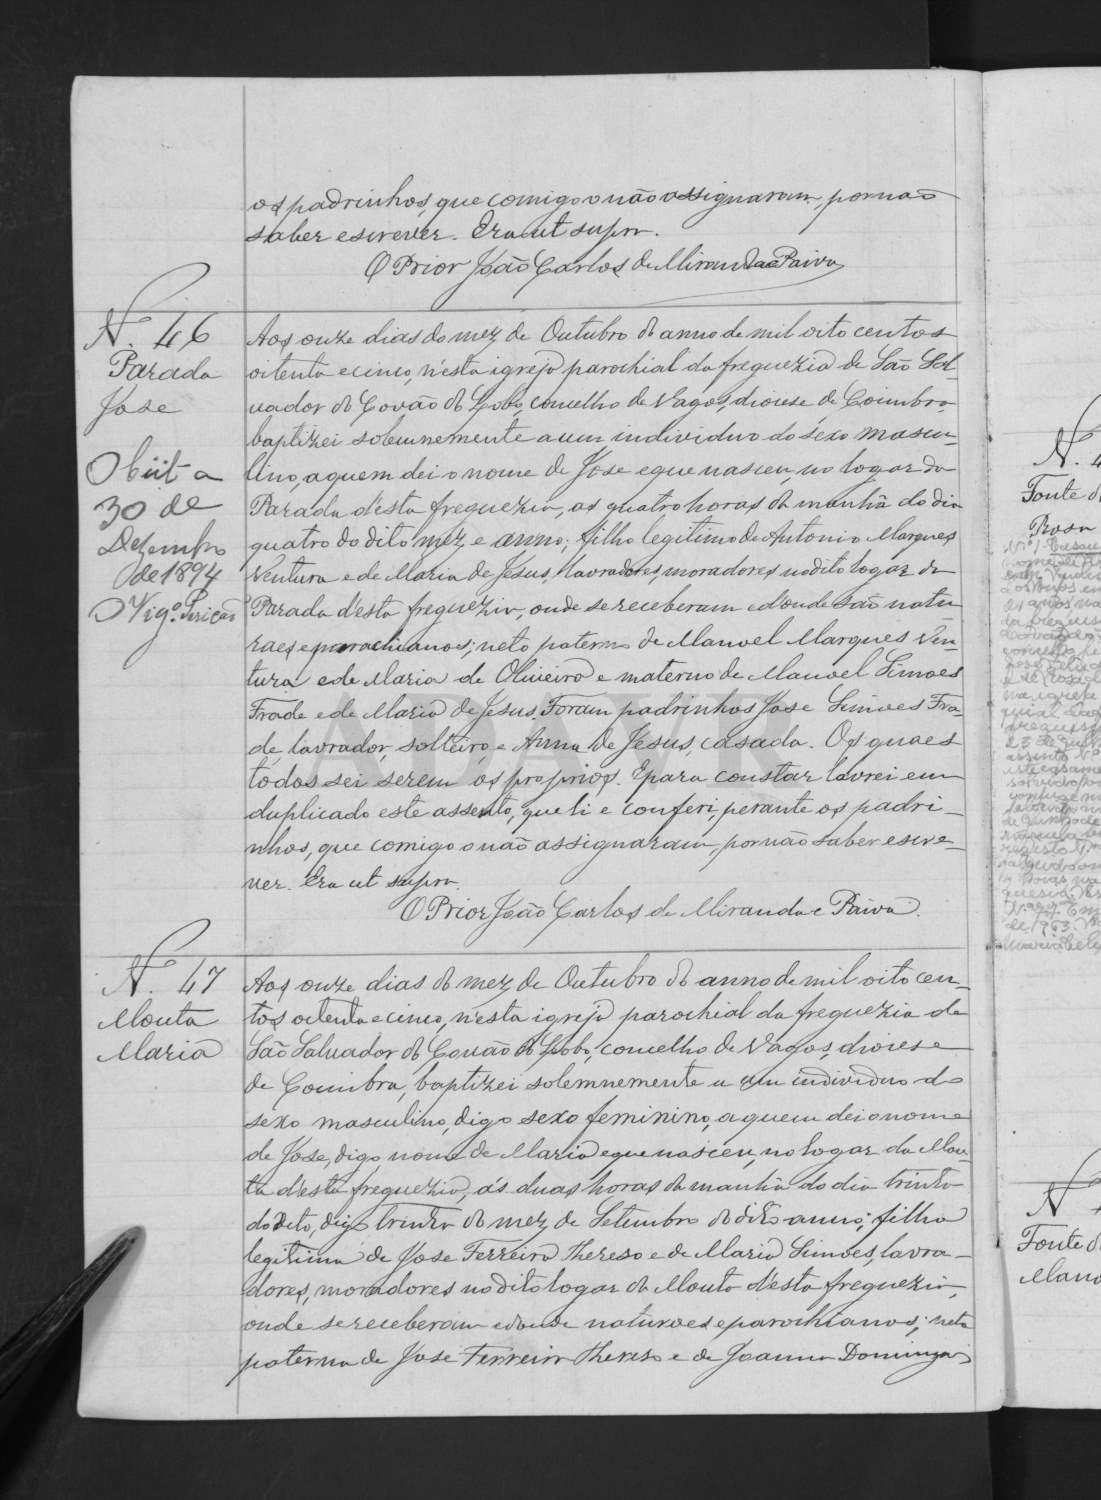 os padrinhos, que comigo o não assignaram, por não
saber escrever. Era ut supra.
O Prior João Carlos de Miranda e Paiva
N. 46
Parada
Jose
Obiit a
30 de
Dezembro
de 1894
O Vig.º
Aos onze dias do mez de Outubro do anno de mil oito centos
oitenta e cinco, n'esta igreja parochial da freguezia de São Sal-
vador do Covão do Lobo, concelho de Vagos, diocese de Coimbra,
baptizei solemnemente a um individuo do sexo mascu-
lino, a quem dei o nome de Jose e que nasceu, no logar da
Parada d'esta freguezia, as quatro horas da manhã do dia
quatro do dito mez e anno; filho legitimo de Antonio Marques
Ventura e de Maria de Jesus, lavradores, moradores no dito logar da
Parada d'esta freguezia, onde se receberam e d'onde são natu-
raes e parochianos; neto paterno de Manoel Marques Ven-
tura e de Maria de Oliveira e materno de Manoel Simoes
Frade e de Maria de Jesus. Foram padrinhos Jose Simoes Fra-
de, lavrador, solteiro, e Anna de Jesus, casada. Os quaes
todos sei serem os proprios. E para constar lavrei em
duplicado este assento, que li e conferi, perante os padri-
nhos, que comigo o não assignaram, por não saber escre-
ver. Era ut supra.
O Prior João Carlos de Miranda e Paiva.
N. 47
Mouta
Maria
Aos onze dias do mez de Outubro do anno de mil oito cen-
tos oitenta e cinco, n'esta igreja parochial da freguezia de
São Salvador do Covão do Lobo, concelho de Vagos, diocese
de Coimbra, baptizei solemnemente a um individuo do
sexo masculino, digo sexo feminino, a quem dei o nome
de Jose, digo, nome de Maria e que nasceu, no logar da Mou-
ta d'esta freguezia, ás duas horas da manhã do dia trinta
do dito, digo trinta do mez de Setembro do dito anno; filha
legitima de Jose Ferreira Thereso e de Maria Simoes, lavra-
dores, moradores no dito logar da Mouta d'esta freguezia,
onde se receberam e donde naturaes e parochianos; neta
paterna de Jose Ferreira Thereso e de Joanna Domingas
ADAVR
N. 4
Fonte d
Rosa
N
Fonte d
Mano